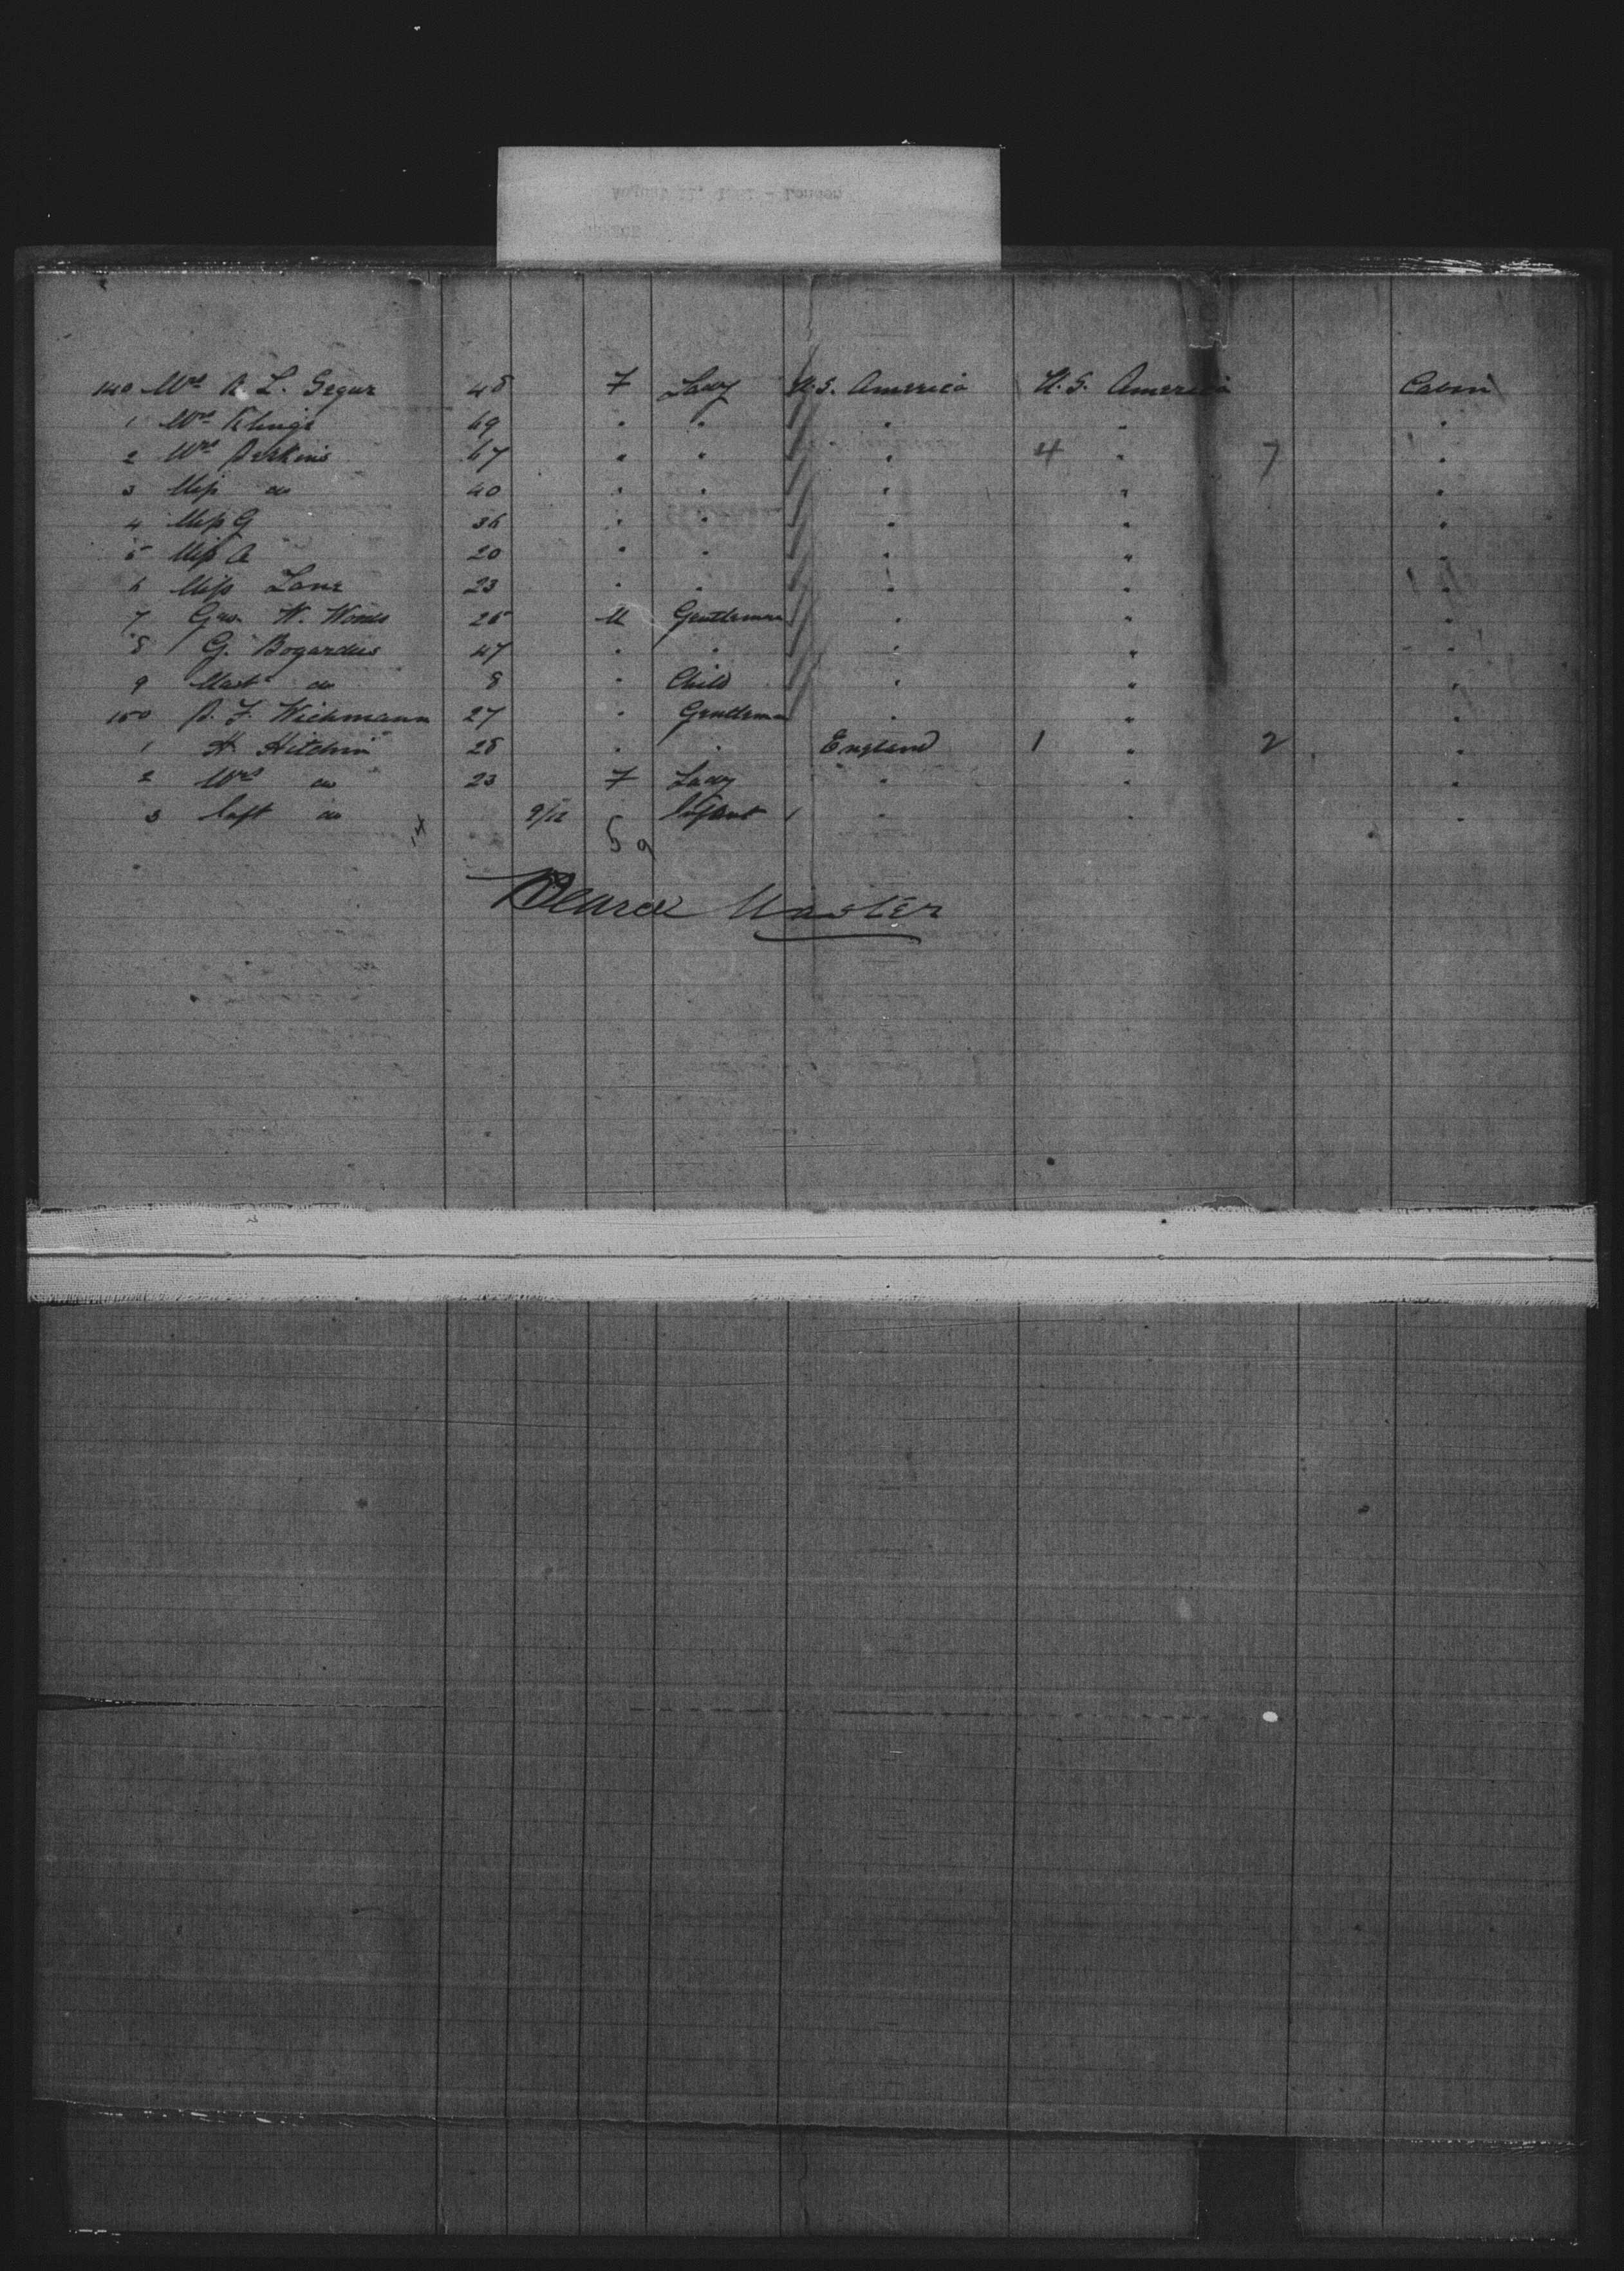 140 Mrs A. L. Segur 48 F Lady U.S. America U.S. America Cabin
1 Mrs Klinge 69 " " " " "
2 Mrs Perkins 67 " " " 4 " 7 "
3 Miss do 40 " " " " "
4 Miss G 36 " " " " "
5 Miss A 20 " " " " "
6 Miss Lane 23 " " " " "
7 Geo. W. Woods 25 M Gentleman " " "
8 G. Bogardus 47 " " " " "
9 Mast do 8 " Child " " "
150 P. F. Wichmann 27 " Gentleman " " "
1 H. Hitchin 28 " " England 1 " 2 "
2 Mrs do 23 F Lady " " "
3 Inft do 9/12 Infant " " "
14 59
Master